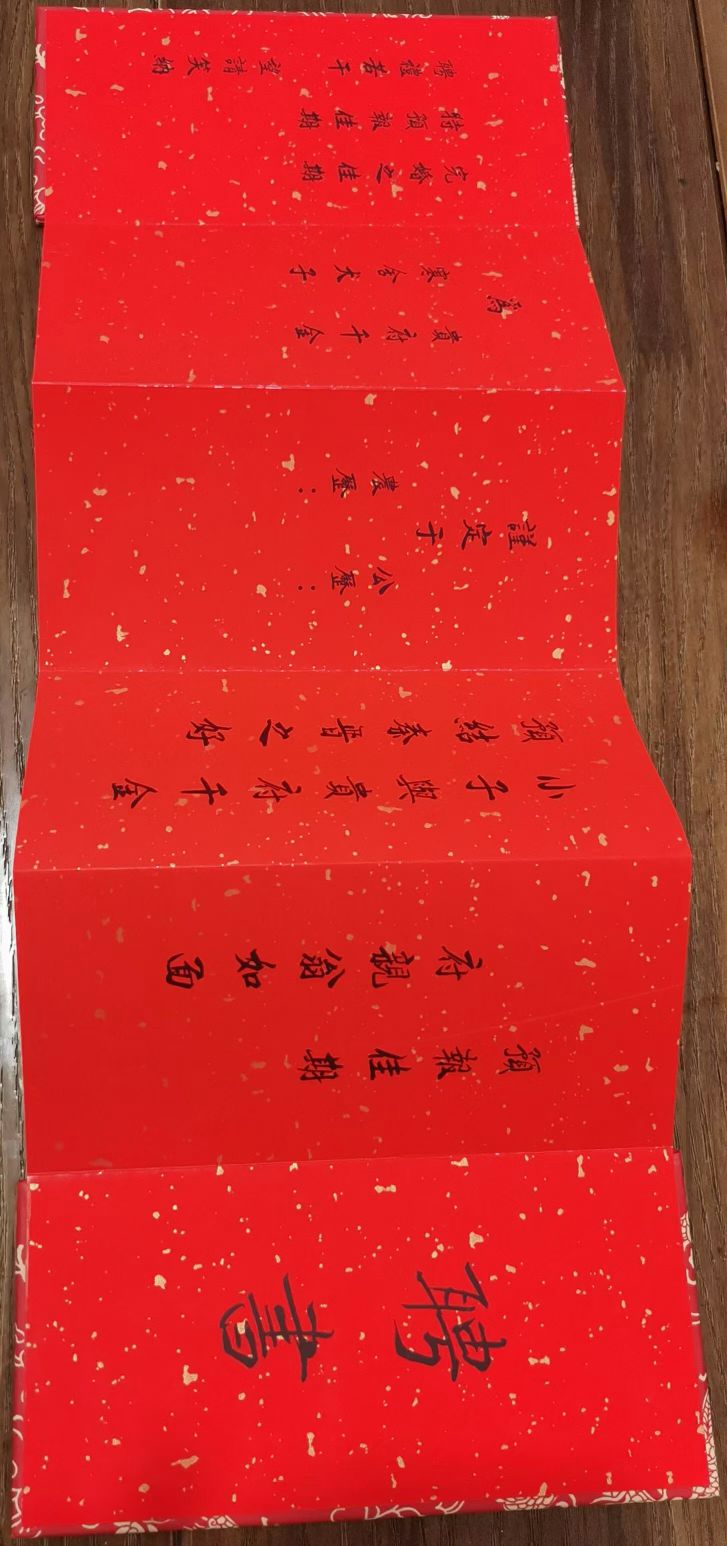 聘書
預報佳期
府親翁如面
小子與貴府千金
預結秦晋之好
公歷：
謹定于
農歷：
貴府千金
為
寒舍犬子
完婚之佳期
特預報佳期
聘禮若干望請笑納